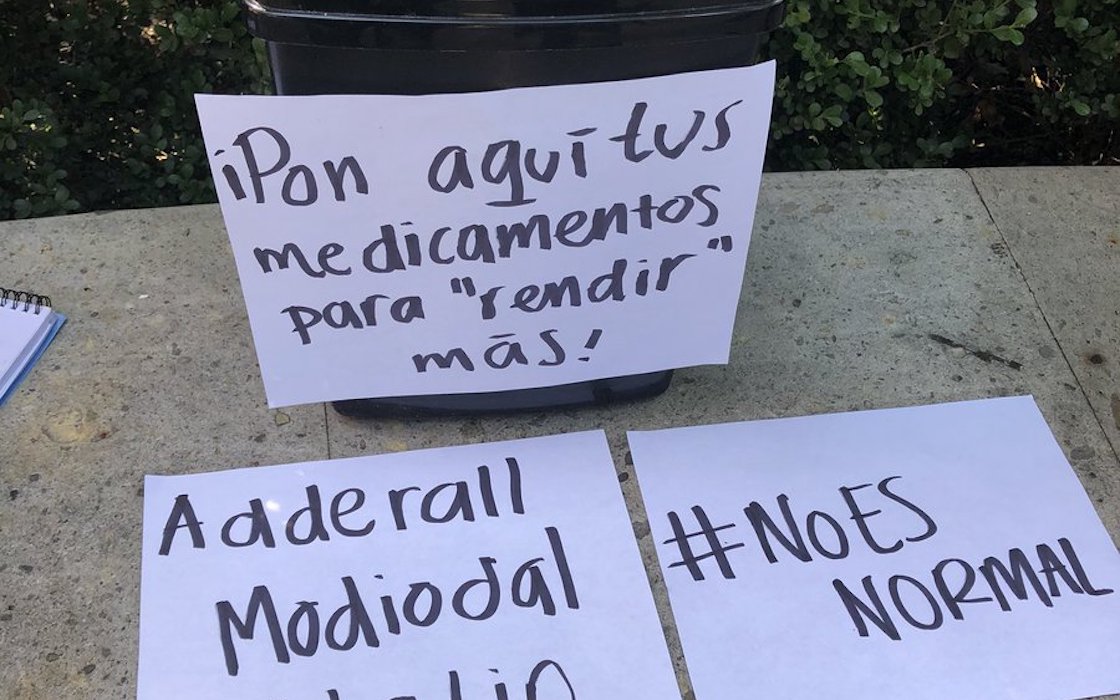 ¡Pon aquí tus
medicamentos
para "rendir"
más!
Adderall
Modiodal
#NoES
NORMAL